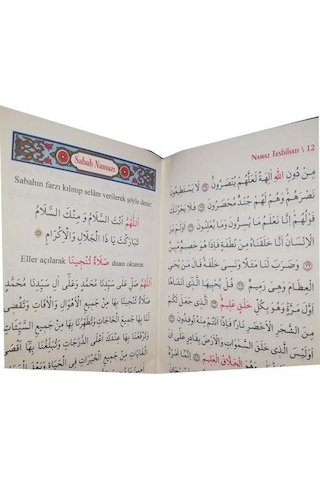 Sabah Namazı
Sabahın farzı kılınıp selâm verilerek şöyle denir:
اَللّٰهُمَّ اَنْتَ السَّلَامُ وَ مِنْكَ السَّلَامُ
تَبَارَكْتَ يَا ذَا الْجَلَالِ وَالْاِكْرَامِ
Eller açılarak صَلَاةً تُنْجِينَا duası okunur.
اَللّٰهُمَّ صَلِّ عَلٰى سَيِّدِنَا مُحَمَّدٍ وَعَلٰى اٰلِ سَيِّدِنَا مُحَمَّدٍ
صَلَاةً تُنْجِينَا بِهَا مِنْ جَمِيعِ الْاَهْوَالِ وَالْاٰفَاتِ وَتَقْضِى
لَنَا بِهَا جَمِيعَ الْحَاجَاتِ وَتُطَهِّرُنَا بِهَا مِنْ جَمِيعِ السَّيِّئَاتِ
وَتَرْفَعُنَا بِهَا عِنْدَكَ اَعْلَى الدَّرَجَاتِ وَتُبَلِّغُنَا بِهَا اَقْصَى
الْغَايَاتِ مِنْ جَمِيعِ الْخَيْرَاتِ فِى الْحَيَاةِ وَبَعْدَ
NAMAZ TESBİHATI \ 12
مِنْ دُونِ اللّٰهِ اٰلِهَةً لَعَلَّهُمْ يُنْصَرُونَ لَا يَسْتَطِيعُونَ
نَصْرَهُمْ وَهُمْ لَهُمْ جُنْدٌ مُحْضَرُونَ فَلَا يَحْزُنْكَ
قَوْلُهُمْ اِنَّا نَعْلَمُ مَا يُسِرُّونَ وَمَا يُعْلِنُونَ اَوَلَمْ يَرَ
الْاِنْسَانُ اَنَّا خَلَقْنَاهُ مِنْ نُطْفَةٍ فَاِذَا هُوَ خَصِيمٌ مُبِينٌ
وَضَرَبَ لَنَا مَثَلًا وَنَسِىَ خَلْقَهُ قَالَ مَنْ يُحْيِى
الْعِظَامَ وَهِىَ رَمِيمٌ قُلْ يُحْيِيهَا الَّذِى اَنْشَاَهَا
اَوَّلَ مَرَّةٍ وَهُوَ بِكُلِّ خَلْقٍ عَلِيمٌ اَلَّذِى جَعَلَ لَكُمْ
مِنَ الشَّجَرِ الْاَخْضَرِ نَارًا فَاِذَا اَنْتُمْ مِنْهُ تُوقِدُونَ
اَوَلَيْسَ الَّذِى خَلَقَ السَّمٰوَاتِ وَالْاَرْضَ بِقَادِرٍ عَلٰى اَنْ
الْخَلَّاقُ الْعَلِيمُ اِنَّمَا اَمْرُهُ